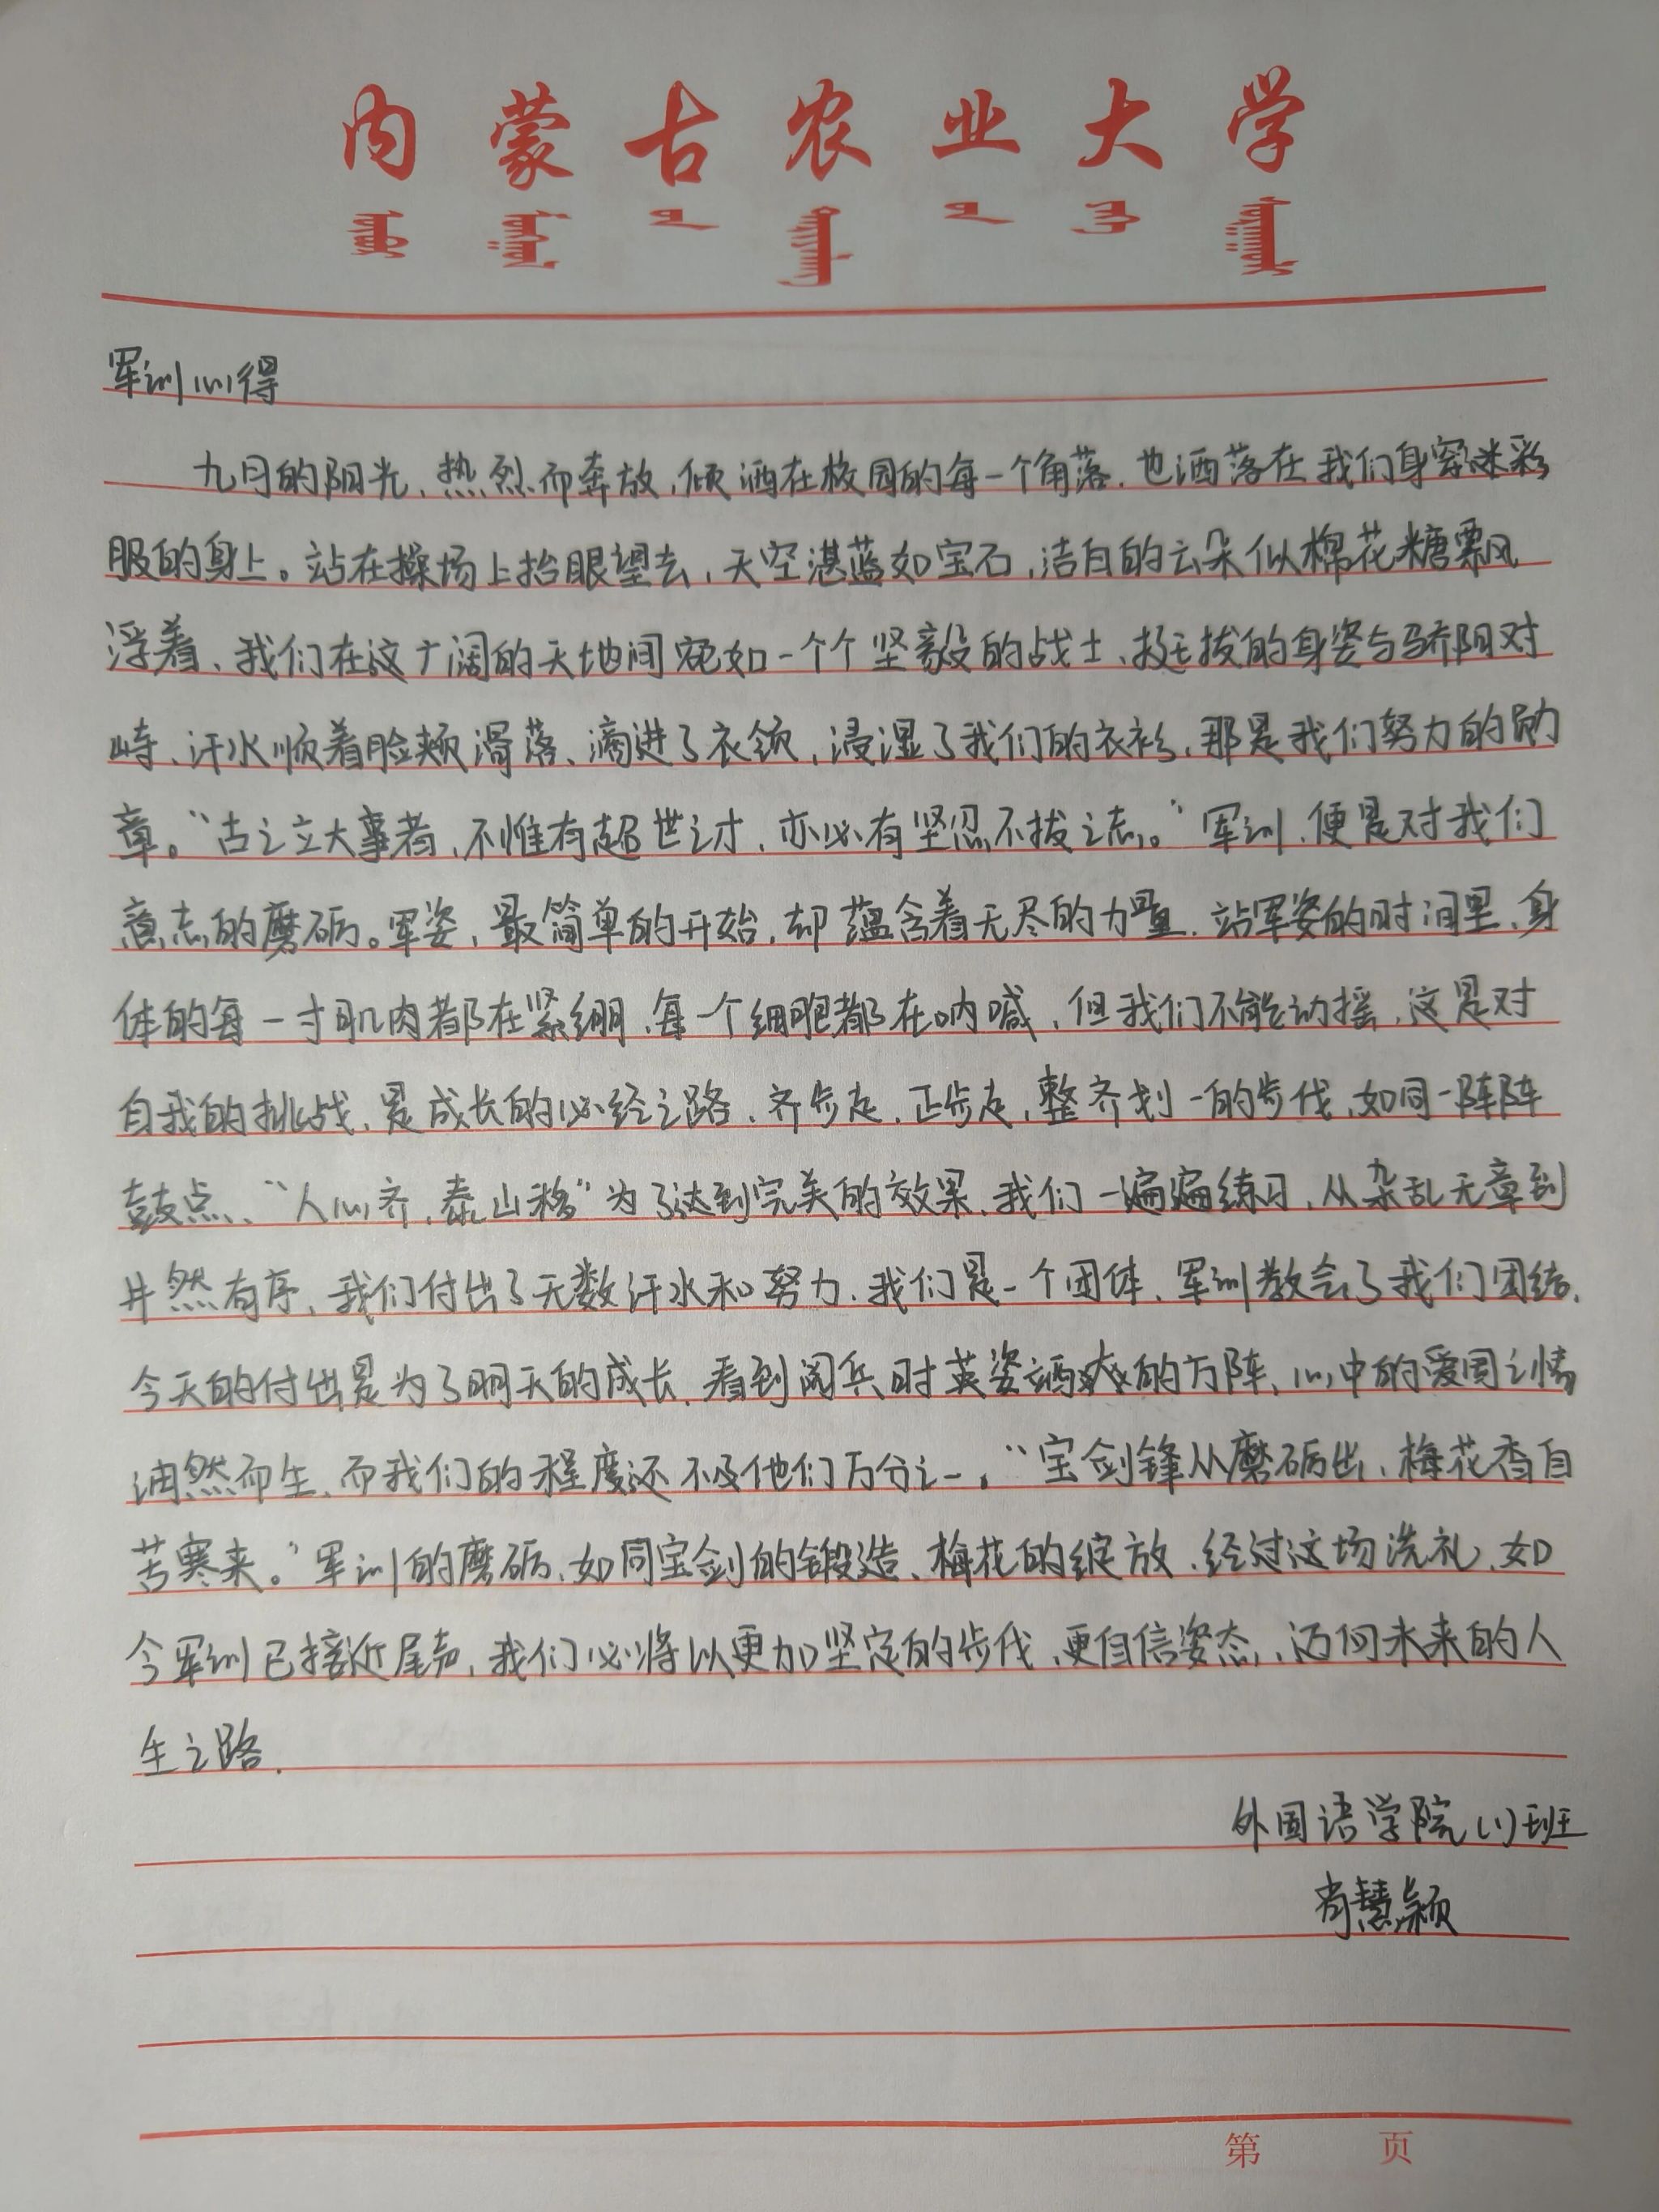 内蒙古农业大学
军训心得
九月的阳光，热烈而奔放，倾洒在校园的每一个角落，也洒落在我们身穿迷彩
服的身上。站在操场上抬眼望去，天空湛蓝如宝石，洁白的云朵似棉花糖飘
浮着，我们在这广阔的天地间宛如一个个坚毅的战士，挺拔的身姿与骄阳对
峙，汗水顺着脸颊滑落，滴进了衣领，浸湿了我们的衣衫，那是我们努力的勋
章。“古之立大事者，不惟有超世之才，亦必有坚忍不拔之志。”军训，便是对我们
意志的磨砺。军姿，最简单的开始，却蕴含着无尽的力量，站军姿的时间里，身
体的每一寸肌肉都在紧绷，每一个细胞都在呐喊，但我们不能动摇，这是对
自我的挑战，是成长的必经之路，齐步走，正步走，整齐划一的步伐，如同一阵阵
鼓点，“人心齐，泰山移”为了达到完美的效果，我们一遍遍练习，从杂乱无章到
井然有序，我们付出了无数汗水和努力，我们是一个团体，军训教会了我们团结，
今天的付出是为了明天的成长，看到阅兵时英姿飒爽的方阵，心中的爱国之情
油然而生，而我们的程度还不及他们万分之一，“宝剑锋从磨砺出，梅花香自
苦寒来。”军训的磨砺，如同宝剑的锻造，梅花的绽放，经过这场洗礼，如
今军训已接近尾声，我们必将以更加坚定的步伐，更自信姿态，迈向未来的人
生之路.
外国语学院(1)班
肖慧颖
第 页